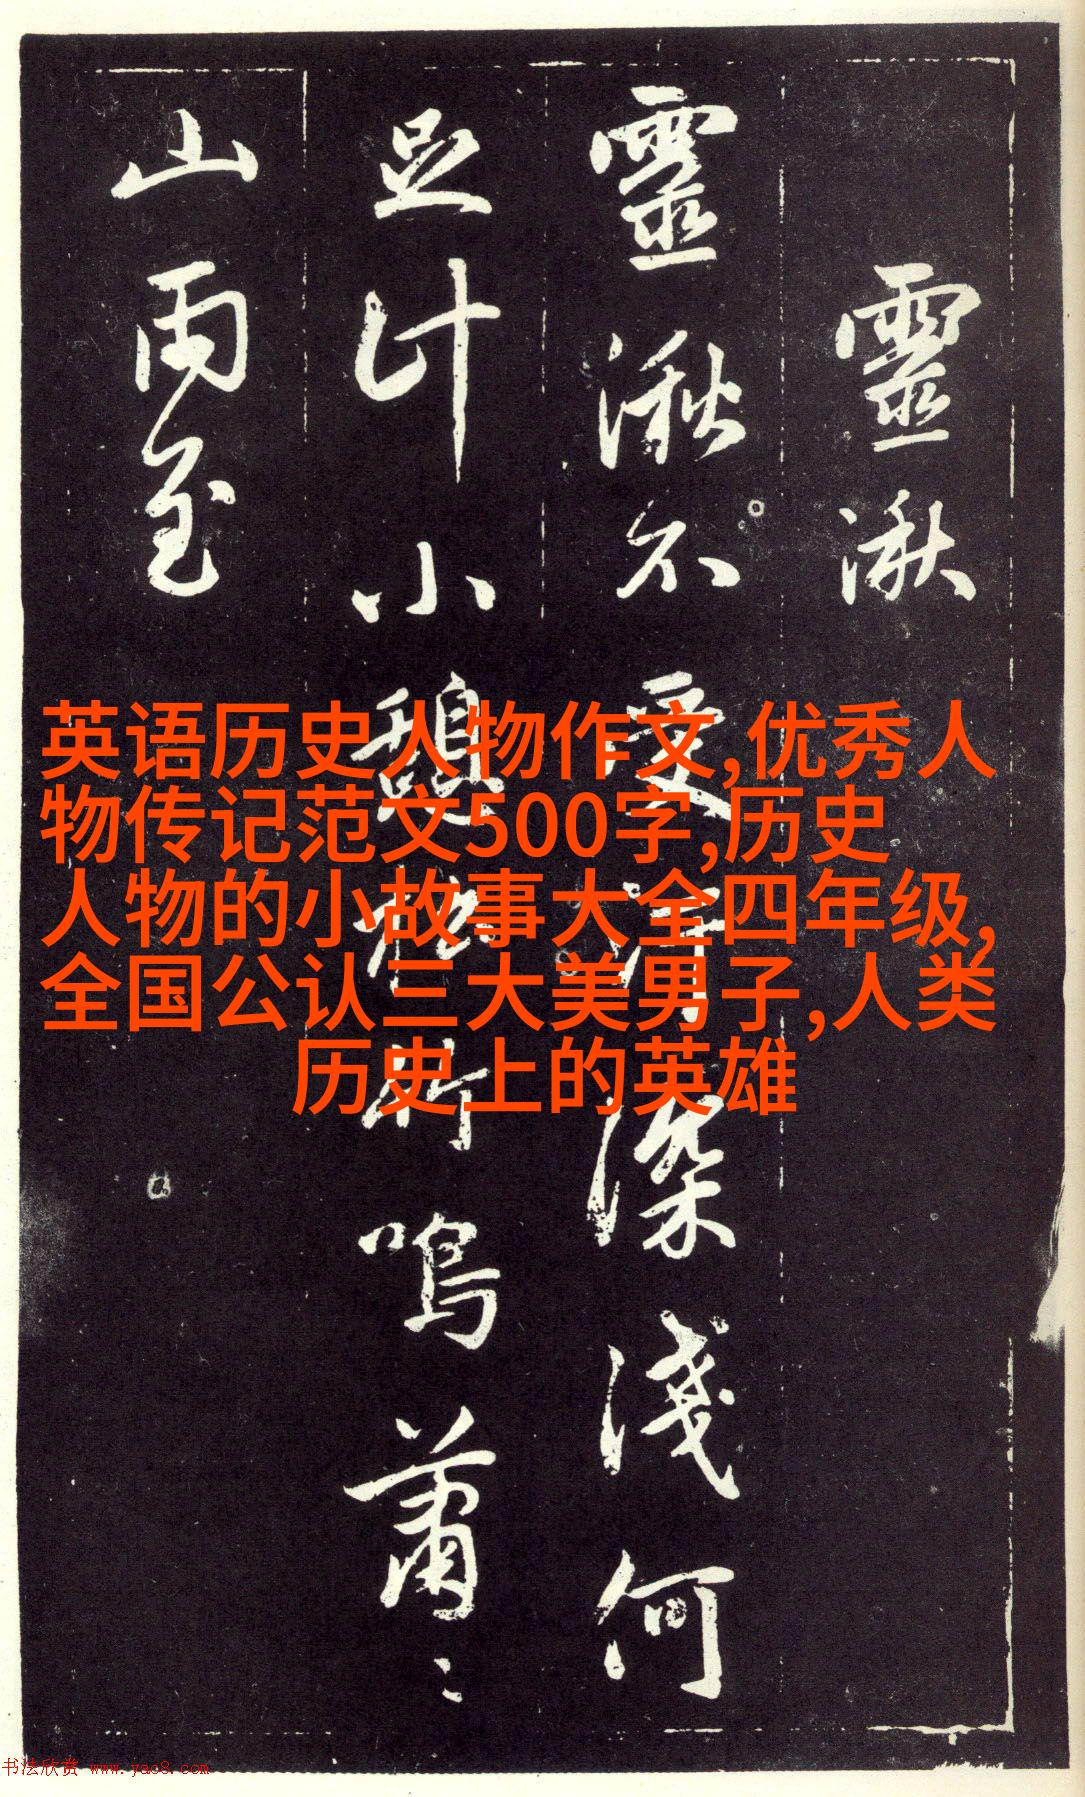 靈湫
靈湫不受深淺何
足計小松竹鳴蕭〻
山雨至
英语历史人物作文,优秀人
物传记范文500字,历史
人物的小故事大全四年级,
全国公认三大美男子,人类
历史上的英雄
书法欣赏 www.yac8.com